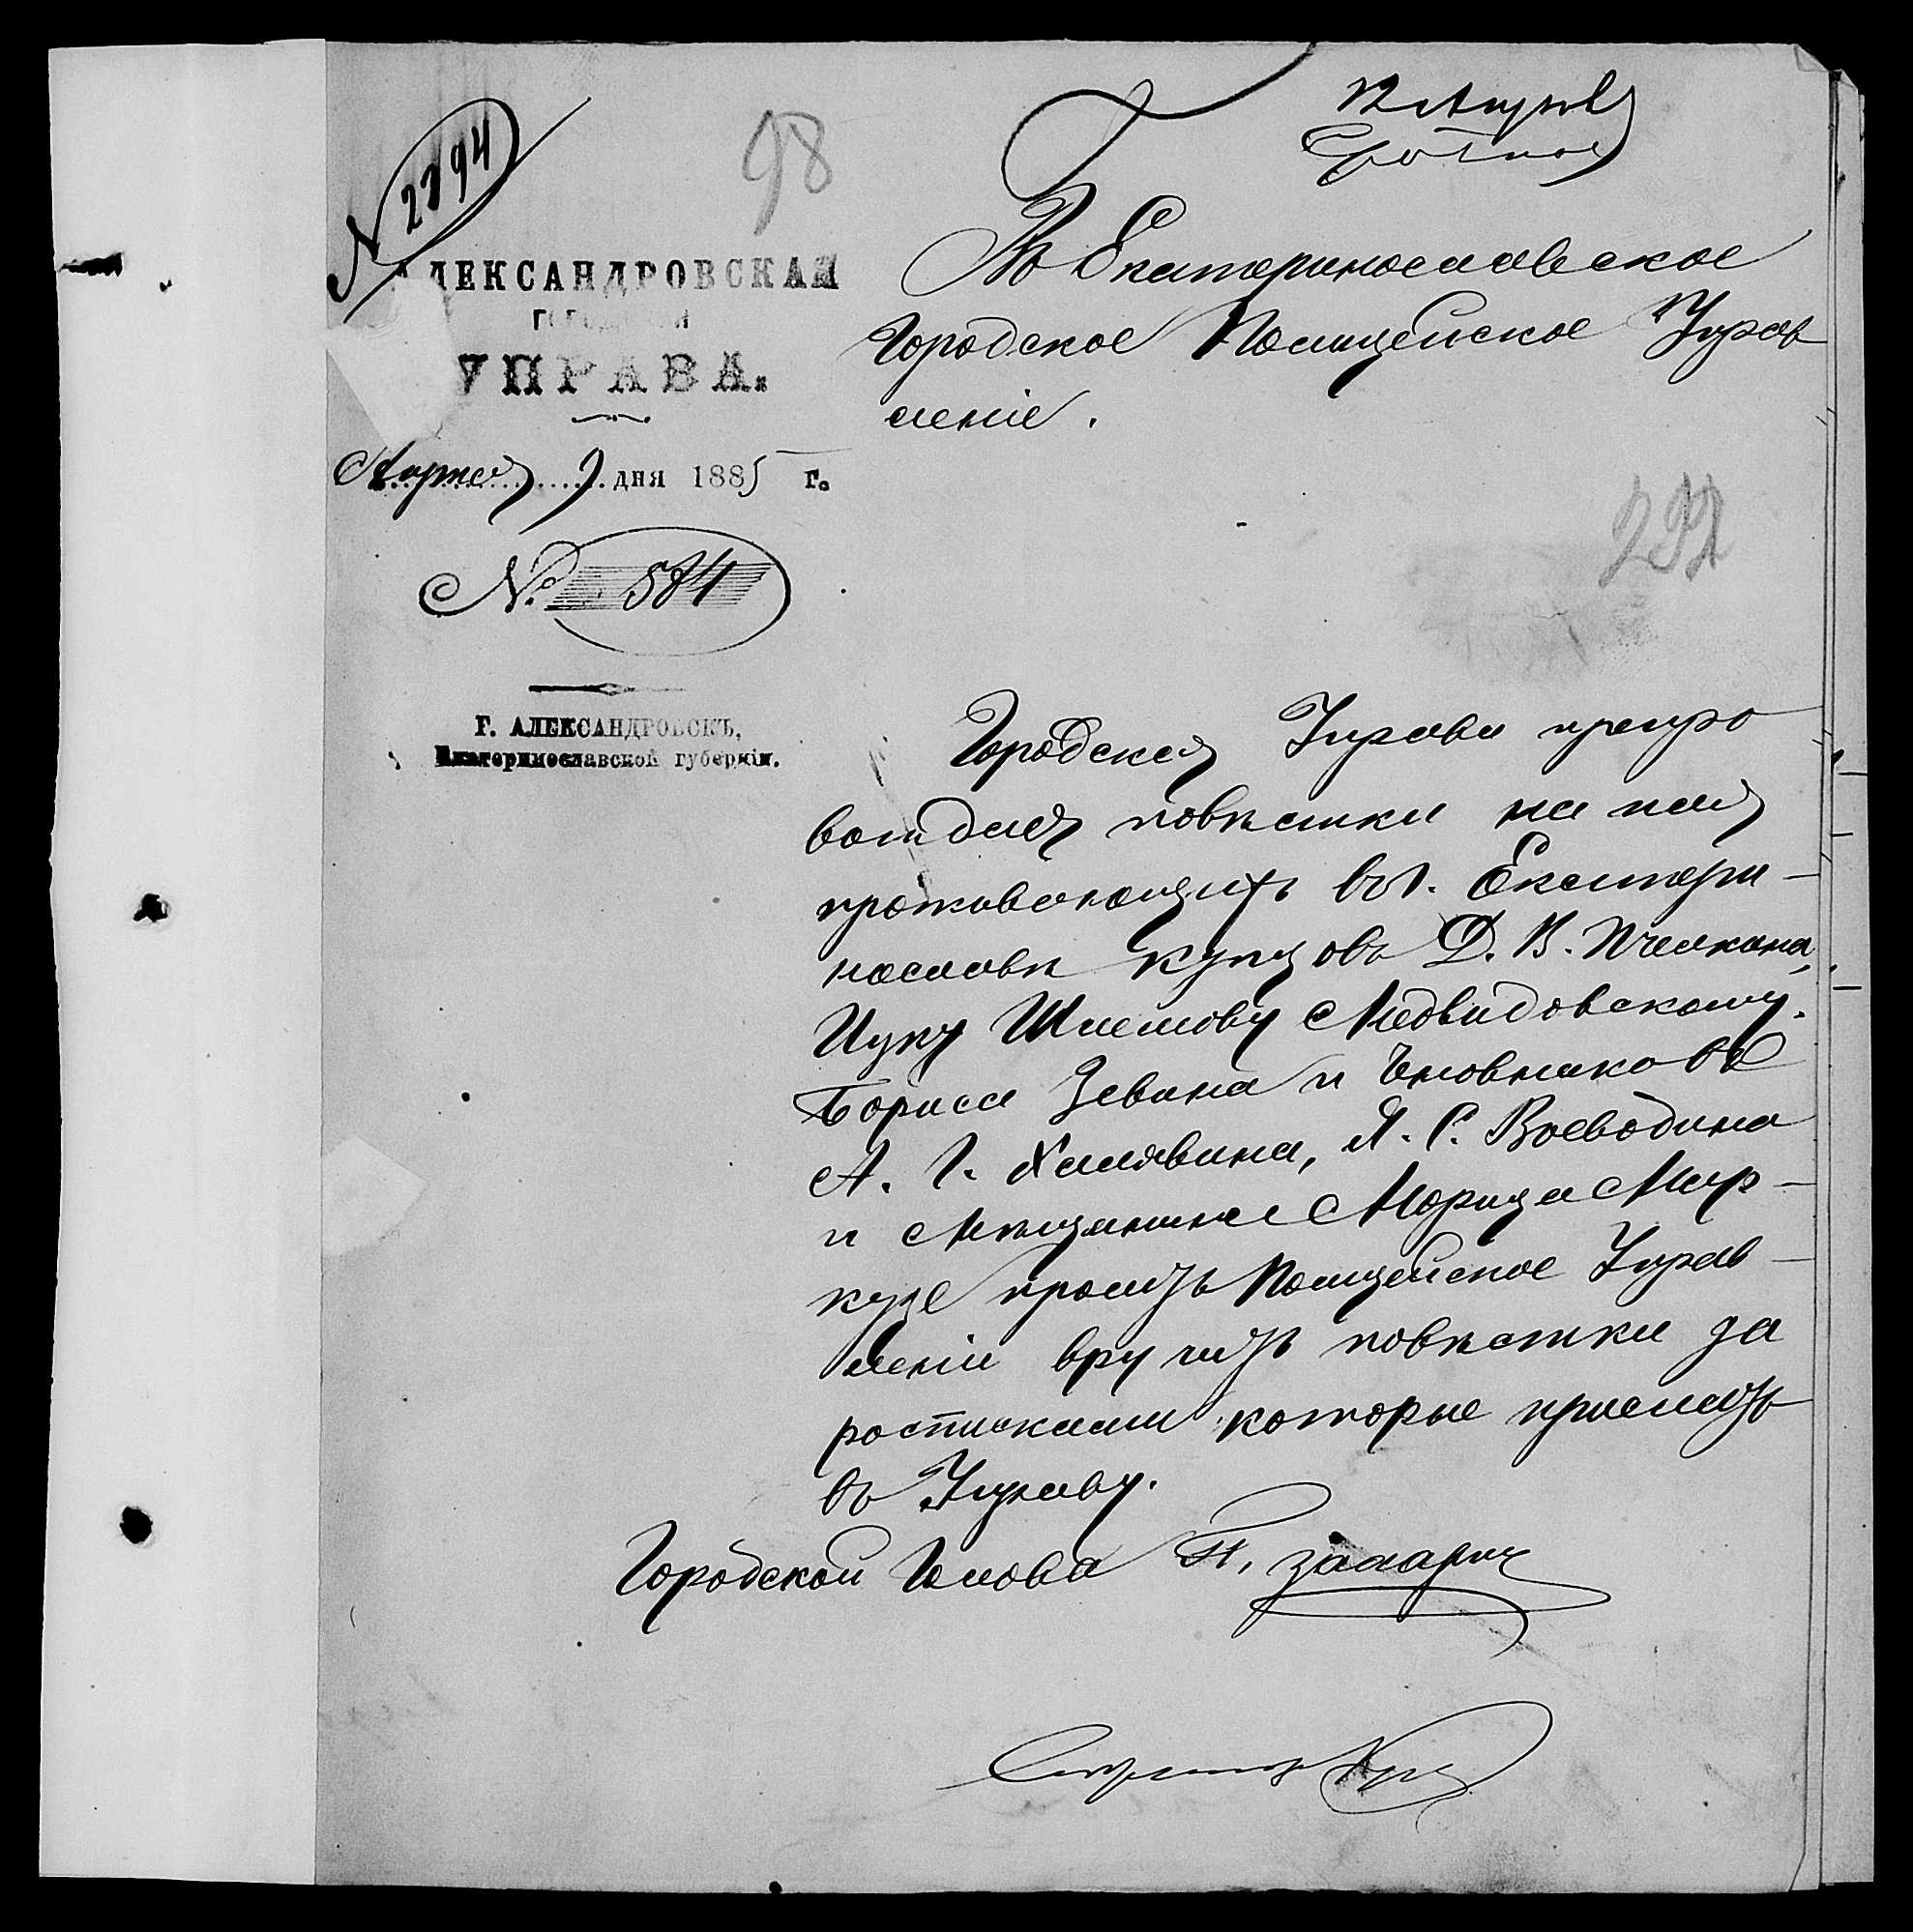 N 2794
98
12 Апрѣл
АЛЕКСАНДРОВСКАЯ
ГОРОДСКАЯ
УПРАВА.
Апреля 9 дня 1885 г.
№ 584
Г. АЛЕКСАНДРОВСКЪ,
Екатеринославской губерніи.
Въ Екатеринославское
Городское Полицейское Управ
леніе.
292
Городская Управа препро
вождая повѣстки на имя
проживающихъ въ г. Екатери-
нославѣ купцовъ Д. В. Пчелкина,
Ицку Шлемову Медвидовскому.
Бориса Зевина и Чиновниковъ
А. Г. Халявина, Я. С. Воеводина
и Мѣщанина Морица Мир-
куле проситъ Полицейское Управ-
леніе вручить повѣстки за
росписками которые прислать
въ Управу.
Городской Голова Я. Захарин
Секретарь